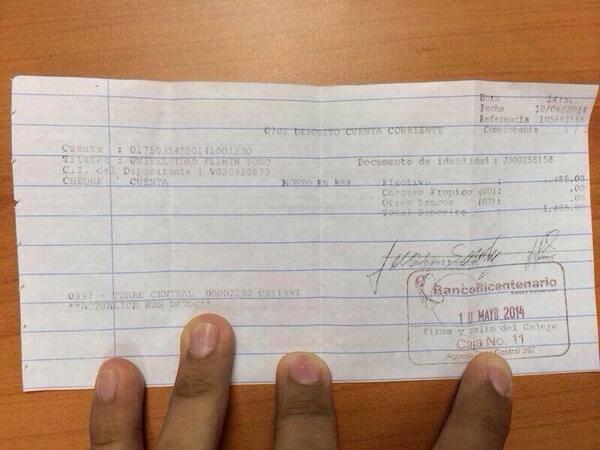 Hora
Fecha 10/06/2014
Referencia 195692566
0702 DEPOSITO CUENTA CORRIENTE Comprobante 1 / 1
Cuenta : 01750354550141001230
Titular : UNIVERSIDAD FERMIN TORO Documento de identidad : J300255158
C.I. del Depositante : V020920873
CHEQUE CUENTA MONTO EN BSF Efectivo : 1,485.00
Cheques Propios (00): .00
Otros Bancos (00): .00
Total Deposito : 1,485.00
0397 - TORRE CENTRAL 00002282 CS11397
**ACTUALICE SUS DATOS**
BancoBicentenario
10 MAYO 2014
Firma y Sello del Cajero
Caja No. 11
Central 397